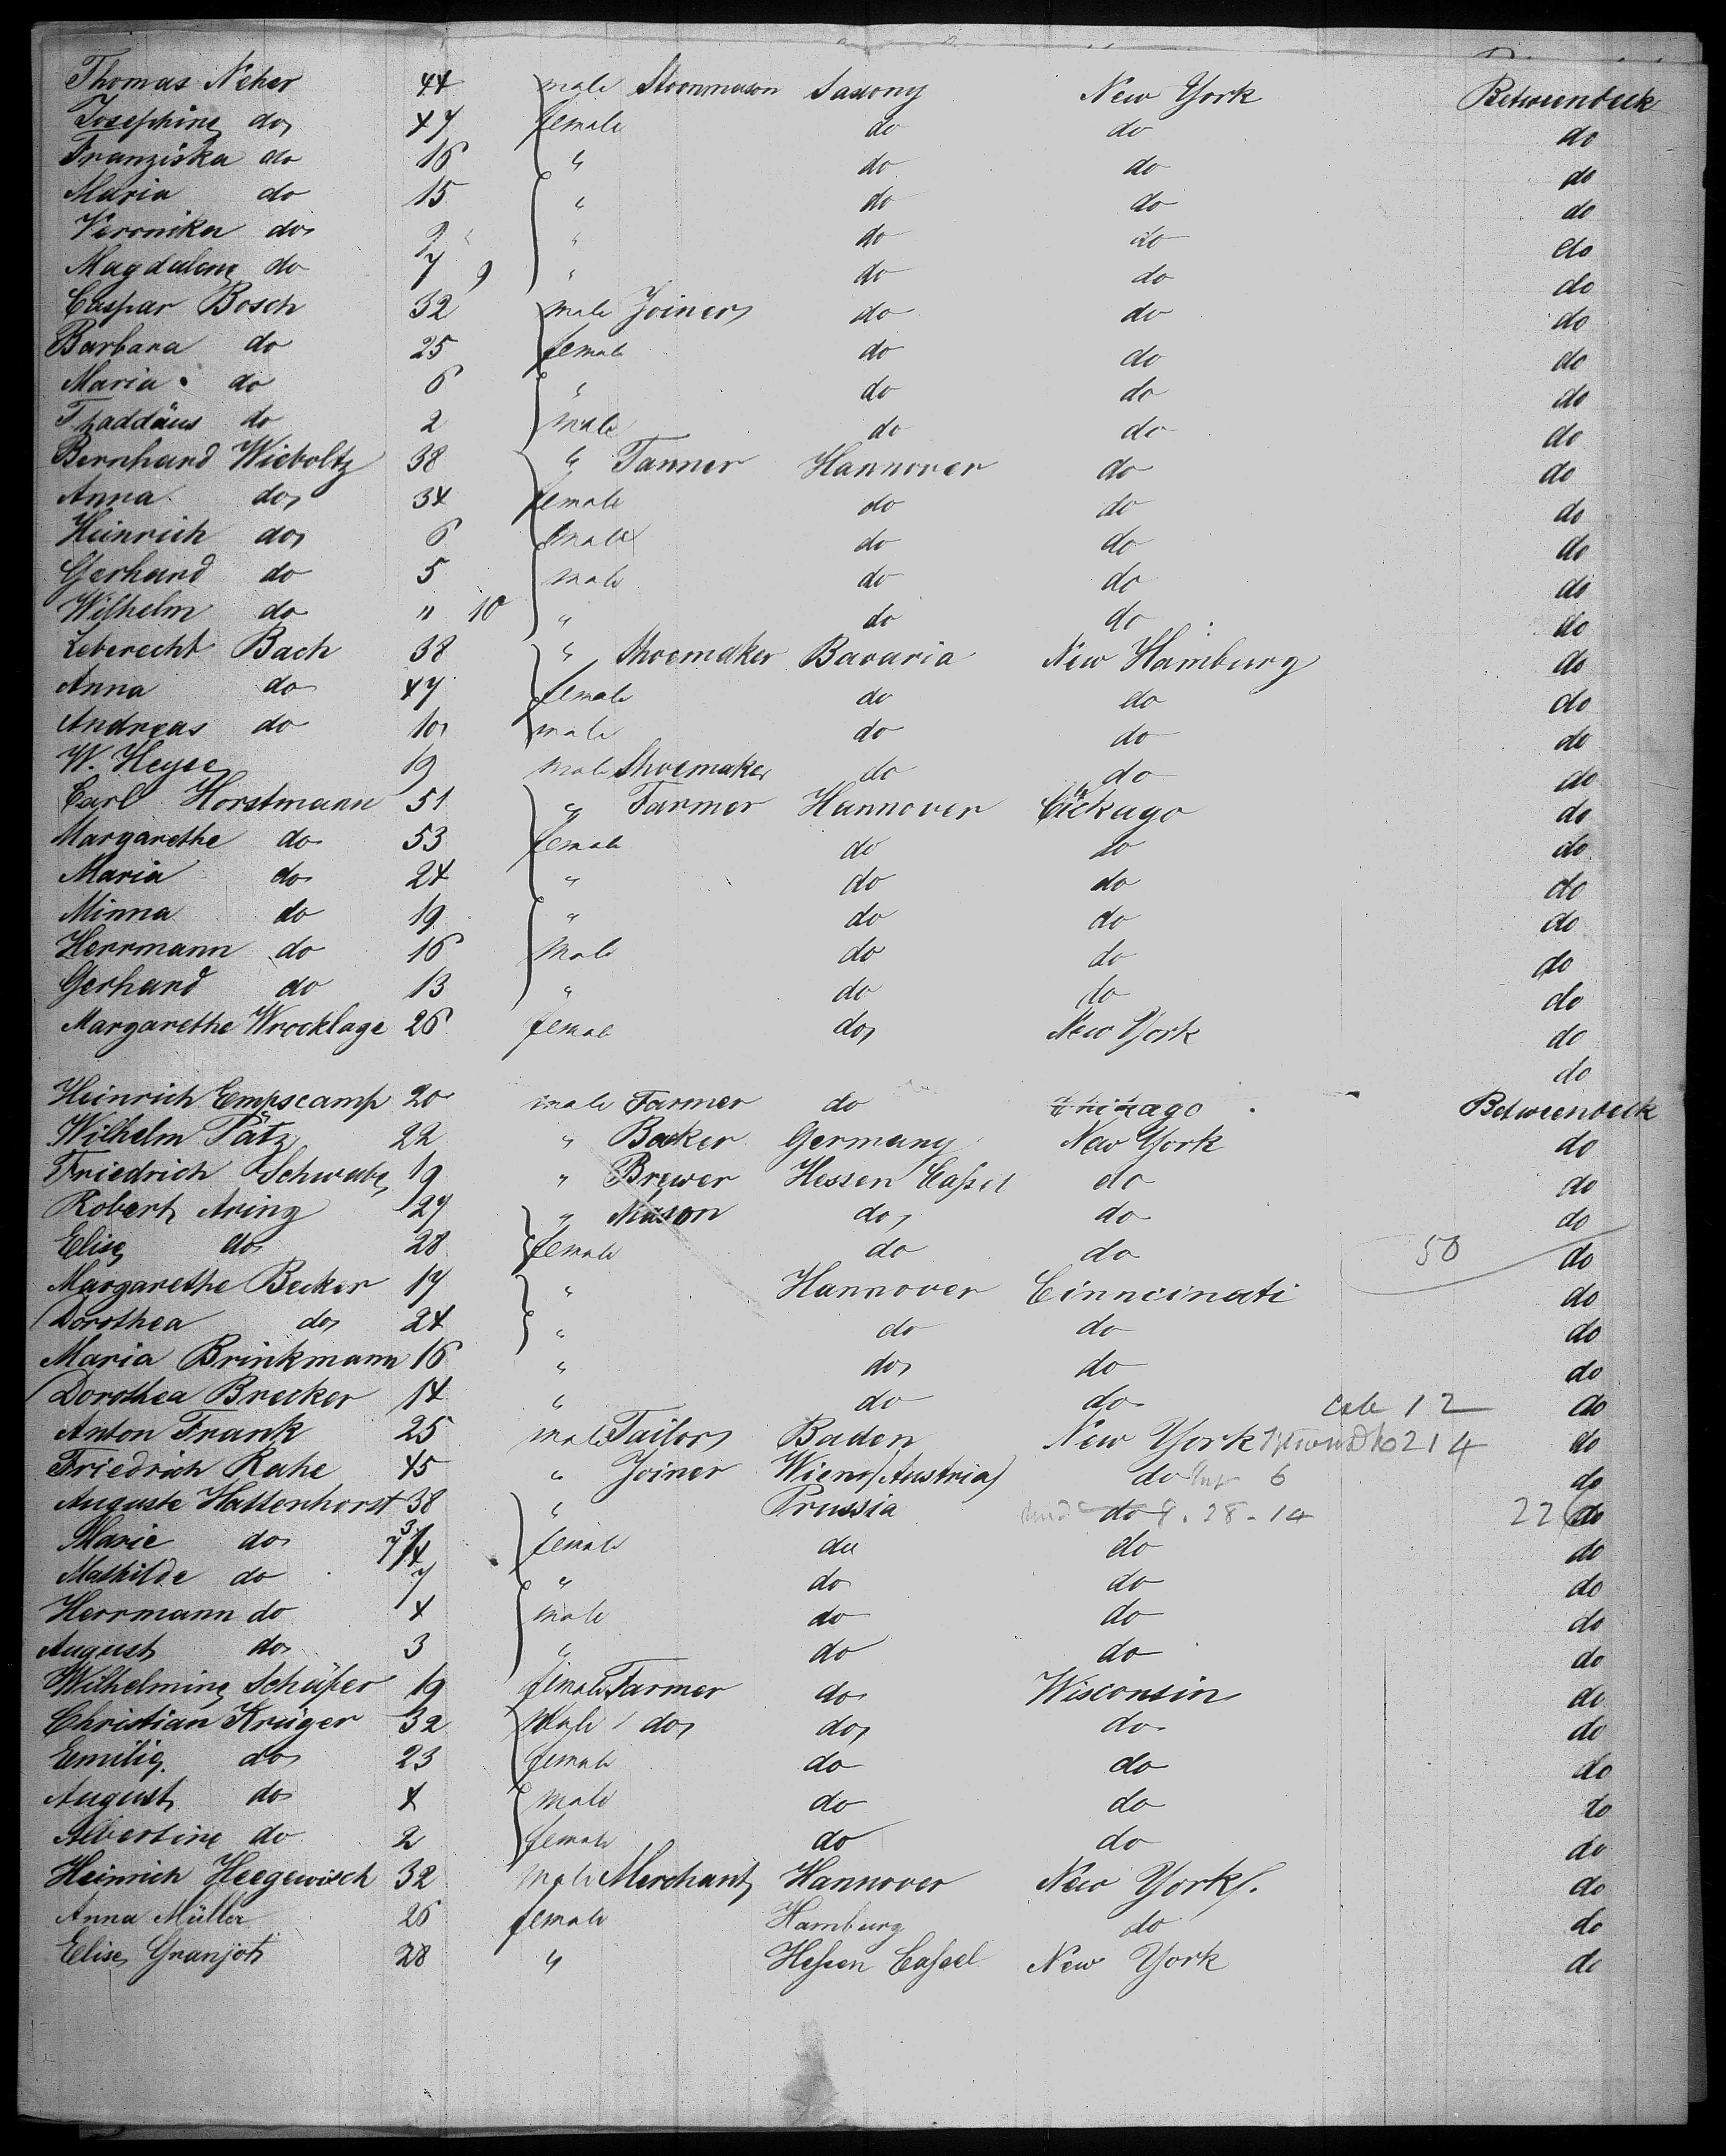 Thomas Neher 44 male Stoonmason Saxony New York Betweendeck
Josephine do 47 female do do do
Franziska do 16 " do do do
Maria do 15 " do do do
Veronika do 9 " do do do
Magdalene do 7 9 " do do do
Caspar Bosch 32 male Joiner do do do
Barbara do 25 female do do do
Maria do 6 " do do do
Thaddäus do 2 male do do do
Bernhard Wieboltz 38 " Tanner Hannover do do
Anna do 34 female do do do
Heinrich do 6 male do do do
Gerhard do 5 male do do do
Wilhelm do " 10 " do do do
Leberecht Bach 38 " Shoemaker Bavaria New Hamburg do
Anna do 47 female do do do
Andreas do 10 male do do do
W. Heyse 19 male Shoemaker do do do
Carl Horstmann 51 " Farmer Hannover Chickago do
Margarethe do 53 female do do do
Maria do 24 " do do do
Minna do 19 " do do do
Herrmann do 16 male do do do
Gerhard do 13 " do do do
Margarethe Wrocklage 26 female do New York do
do
Heinrich Empscamp 20 male Farmer do Betweendeck
Wilhelm Pätz 22 " Baker Germany New York do
Friedrich Schwabe 19 " Brewer Hessen Cassel do do
Robert Aring 27 " Mason do do do
Elise do 28 female do do 50 do
Margarethe Becker 17 " Hannover Cinncinati do
Dorothea do 24 " do do do
Maria Brinkmann 16 " do do do
Dorothea Brecker 14 " do do 12 do
Anton Frank 25 male Tailor Baden New York 214 do
Friedrich Rahe 45 " Joiner Wien (Austria) do 6 do
Auguste Hattenhorst 38 " Prussia do 226 do
Marie do female do do do
Mathilde do 7 " do do do
Herrmann do 4 male do do do
August do 3 " do do do
Wilhelmine Schäfer 19 female Farmer do Wisconsin do
Christian Krüger 32 Male do do do do
Emilie do 23 female do do do
August do 4 male do do do
Albertine do 2 female do do do
Heinrich Heegewisch 32 male Merchant Hannover New York do
Anna Müller 26 female Hamburg do do
Elise Granjot 28 " Hessen Cassel New York do